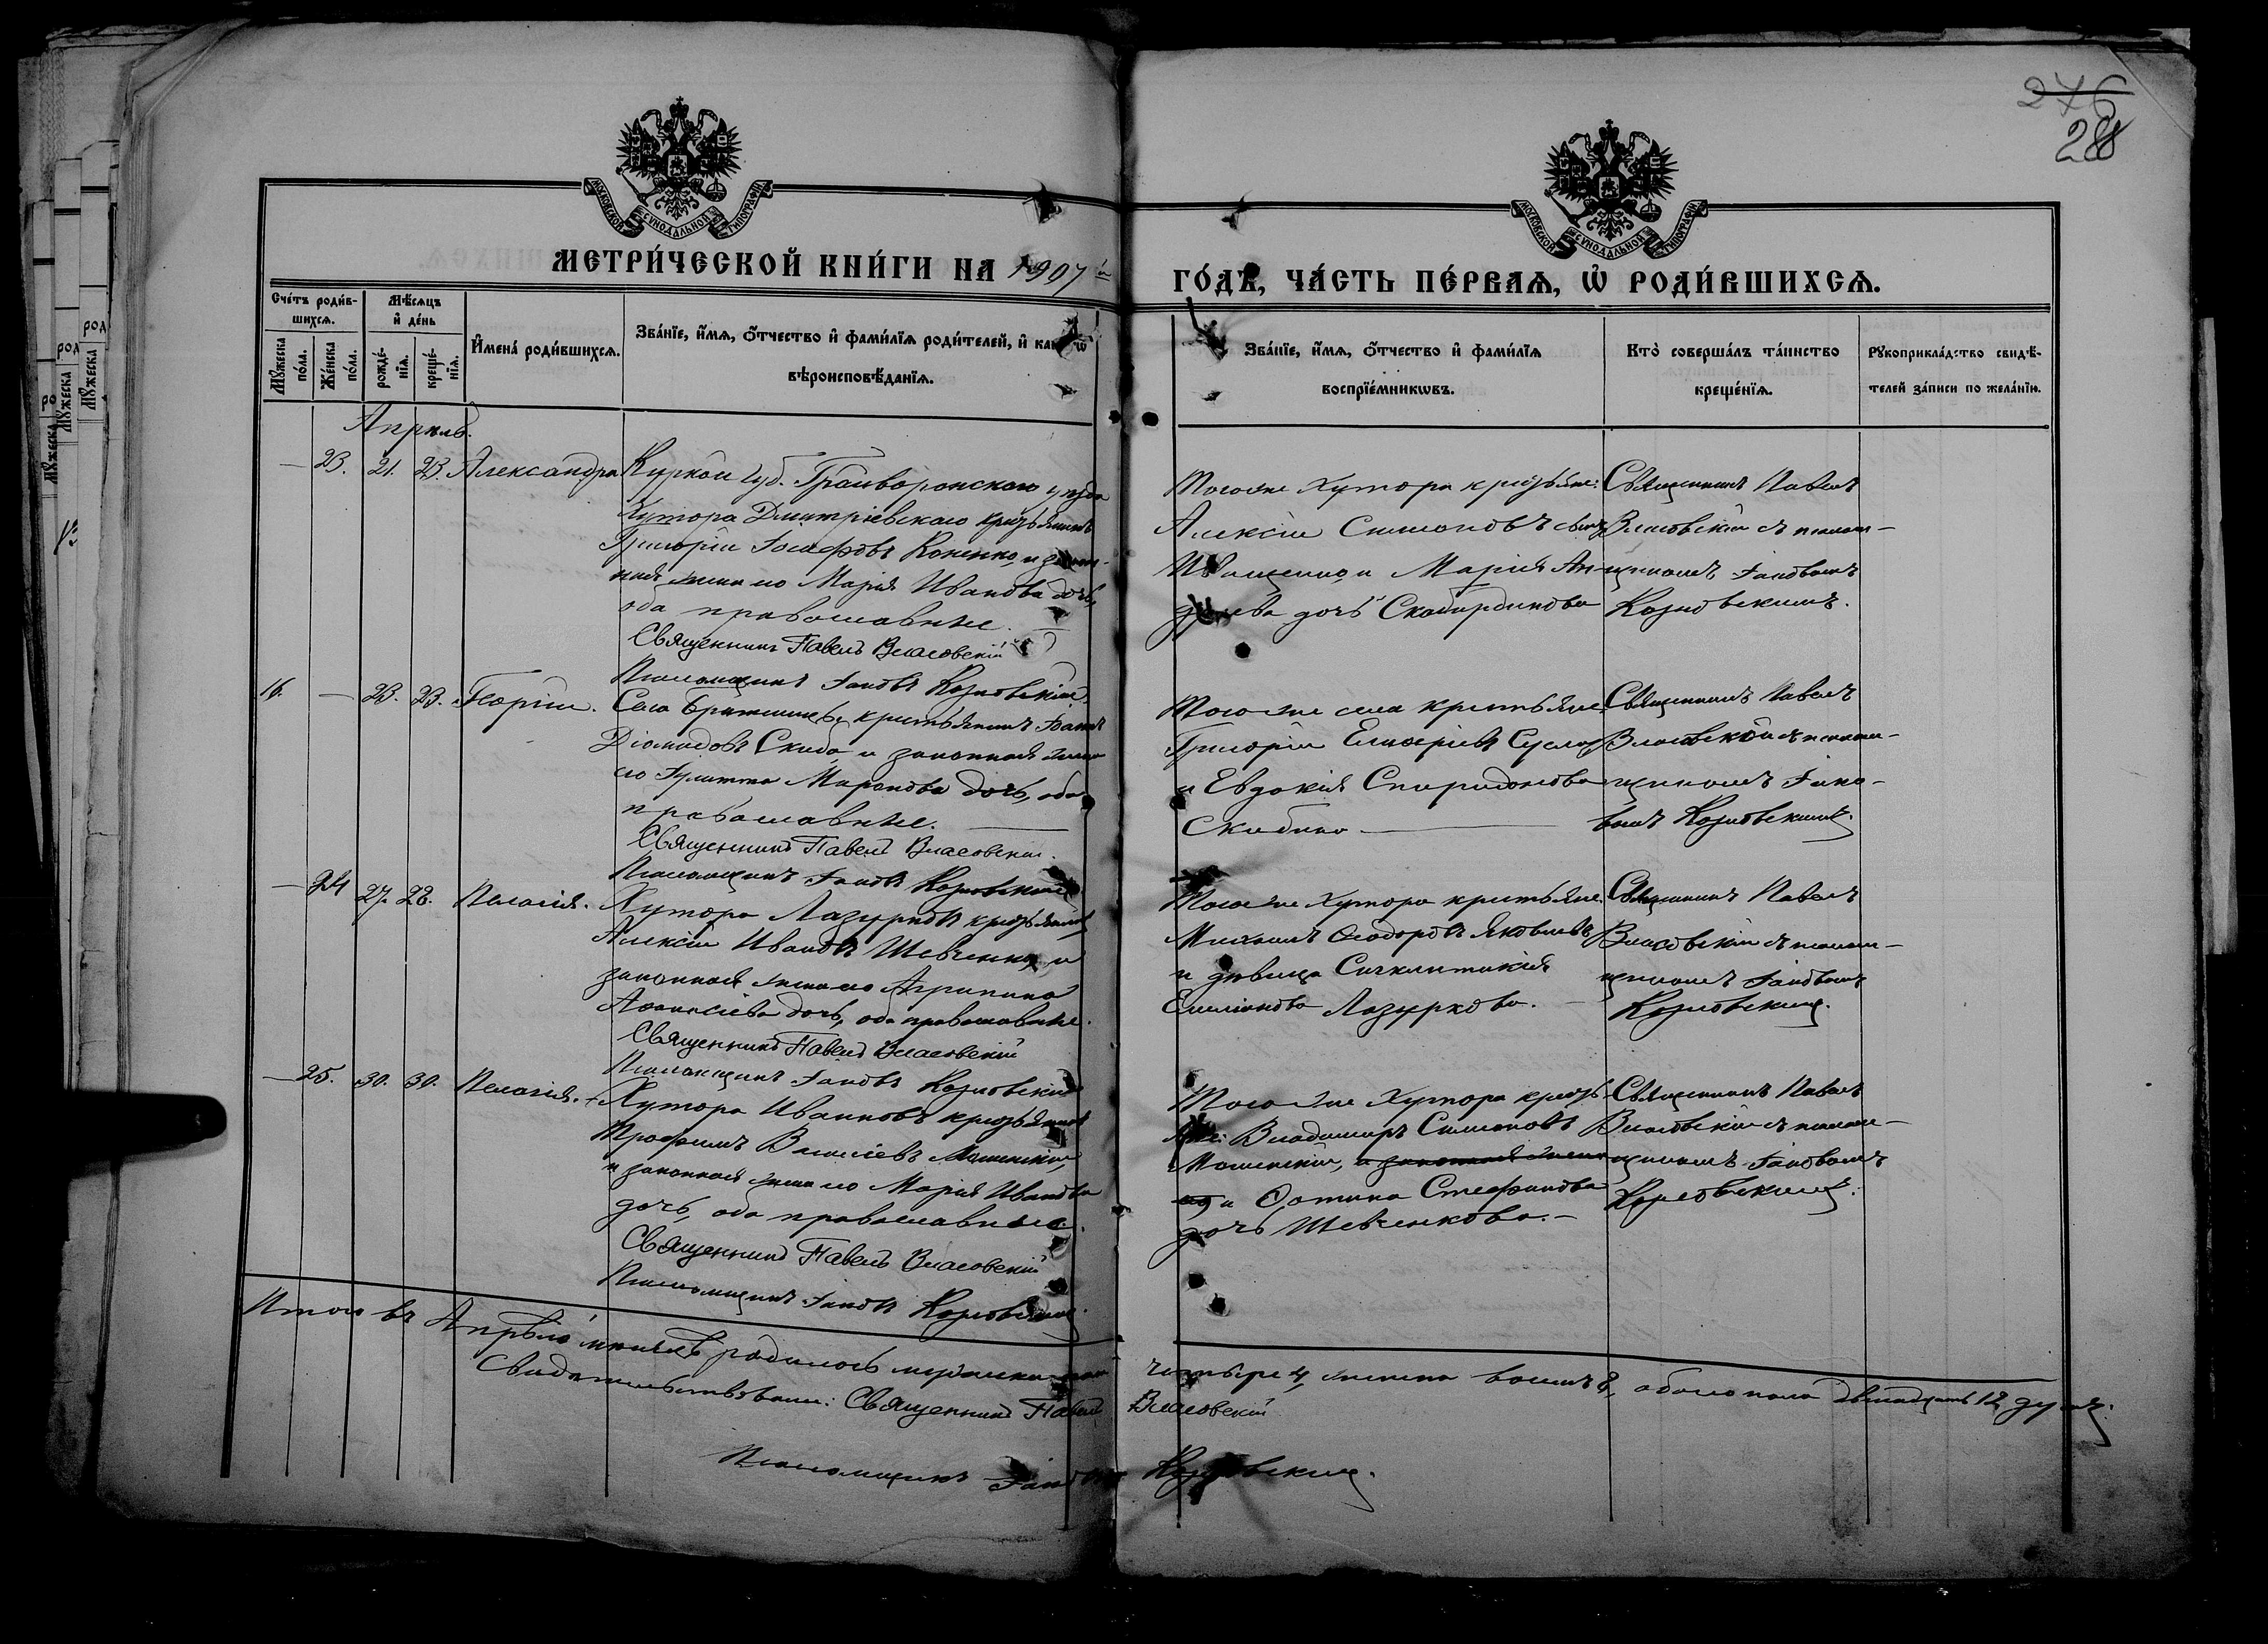 276
28
МОСКОВСКОЙ СѴНОДАЛЬНОЙ ТИПОГРАФІИ
МОСКОВСКОЙ СѴНОДАЛЬНОЙ ТИПОГРАФІИ
МЕТРИ́ЧЕСКОЙ КНИ́ГИ НА 1907 й
ГО́ДЪ, ЧА́СТЬ ПЕ́РВАѦ, Ѽ РОДИ́ВШИХСѦ.
Сче́тъ роди́в-
шихсѧ.
Мѣ́сѧцъ
и҆ де́нь
Мꙋ́жеска
по́ла.
Же́нска
по́ла.
рожде́-
нїѧ.
креще́-
нїѧ.
И҆мена̀ роди́вшихсѧ.
Зва́нїе, и҆́мѧ, ѻ҆́тчество и҆ фами́лїѧ роди́телей, и҆
вѣроисповѣ́данїѧ.
Зва́нїе, и҆́мѧ, ѻ҆́тчество и҆ фами́лїѧ
воспрїе́мникωвъ.
Кто̀ соверша́лъ та́инство
креще́нїѧ.
Рꙋкоприкла́дство свидѣ́-
телей за́писи по жела́нїю.
Апрель.
— 23. 21. 23. Александра
Курской Губ. Грайворонского уезда
Хутора Дмитріевскаго крестьянинъ
Григорій Іоасафовъ Коненко, и закон-
ная жена его Марія Иванова дочь,
оба православные.
Священникъ Павелъ Власовскій
Псаломщикъ Іаковъ Козловскій.
Того же Хутора крестьяне:
Алексій Симоновъ сынъ
Иващенко, и Марія Ан-
дреева дочь
Священникъ Павелъ
Власовскій съ псалом-
щикомъ Іаковомъ
Козловскимъ.
16. — 23. 23. Георгій.
Села крестьянинъ Іоаннъ
Діомидовъ Скиба, и законная жена
его Іулитта Миронова дочь, оба
православные.
Священникъ Павелъ Власовскій.
Псаломщикъ Іаковъ Козловскій
Того же села крестьяне
Григорій
и Евдокія Спиридонова
Скибина
Священникъ Павелъ
Власовскій съ псалом-
щикомъ Іако-
вомъ Козловскимъ.
— 24 27. 28. Пелагія.
Хутора Лазуркова крестьянинъ
Алексій Ивановъ Шевченко, и
законная жена его Агрипина
Аѳанасіева дочь, оба православные.
Священникъ Павелъ Власовскій
Псаломщикъ Іаковъ Козловскій
Того же Хутора крестьяне:
Михаилъ Ѳеодоровъ Яковлевъ
и девица Сигклитикія
Емиліанова Лазуркова.
Священникъ Павелъ
Власовскій съ псалом-
щикомъ Іаковомъ
Козловскимъ.
— 25. 30. 30. Пелагія.
Хутора Ивановъ крестьянинъ
Трофимъ Василіевъ Мошенскій,
и законная жена его Марія Иванова
дочь, оба православные.
Священникъ Павелъ Власовскій
Псаломщикъ Іаковъ Козловскій.
Того же Хутора кресть-
яне: Владимиръ Симоновъ
Мошенскій, и законная жена
его и Фотина Стефанова
дочь Шевченкова.
Священникъ Павелъ
Власовскій съ псалом-
щикомъ Іаковомъ
Козловскимъ.
Итого въ Апреле месяце родилось мужеска пола четыре 4, женска восемъ 8, обоего пола двенадцать 12 душъ.
Свидетельствовали: Священникъ Павелъ Власовскій
Псаломщикъ Іаковъ Козловскій.